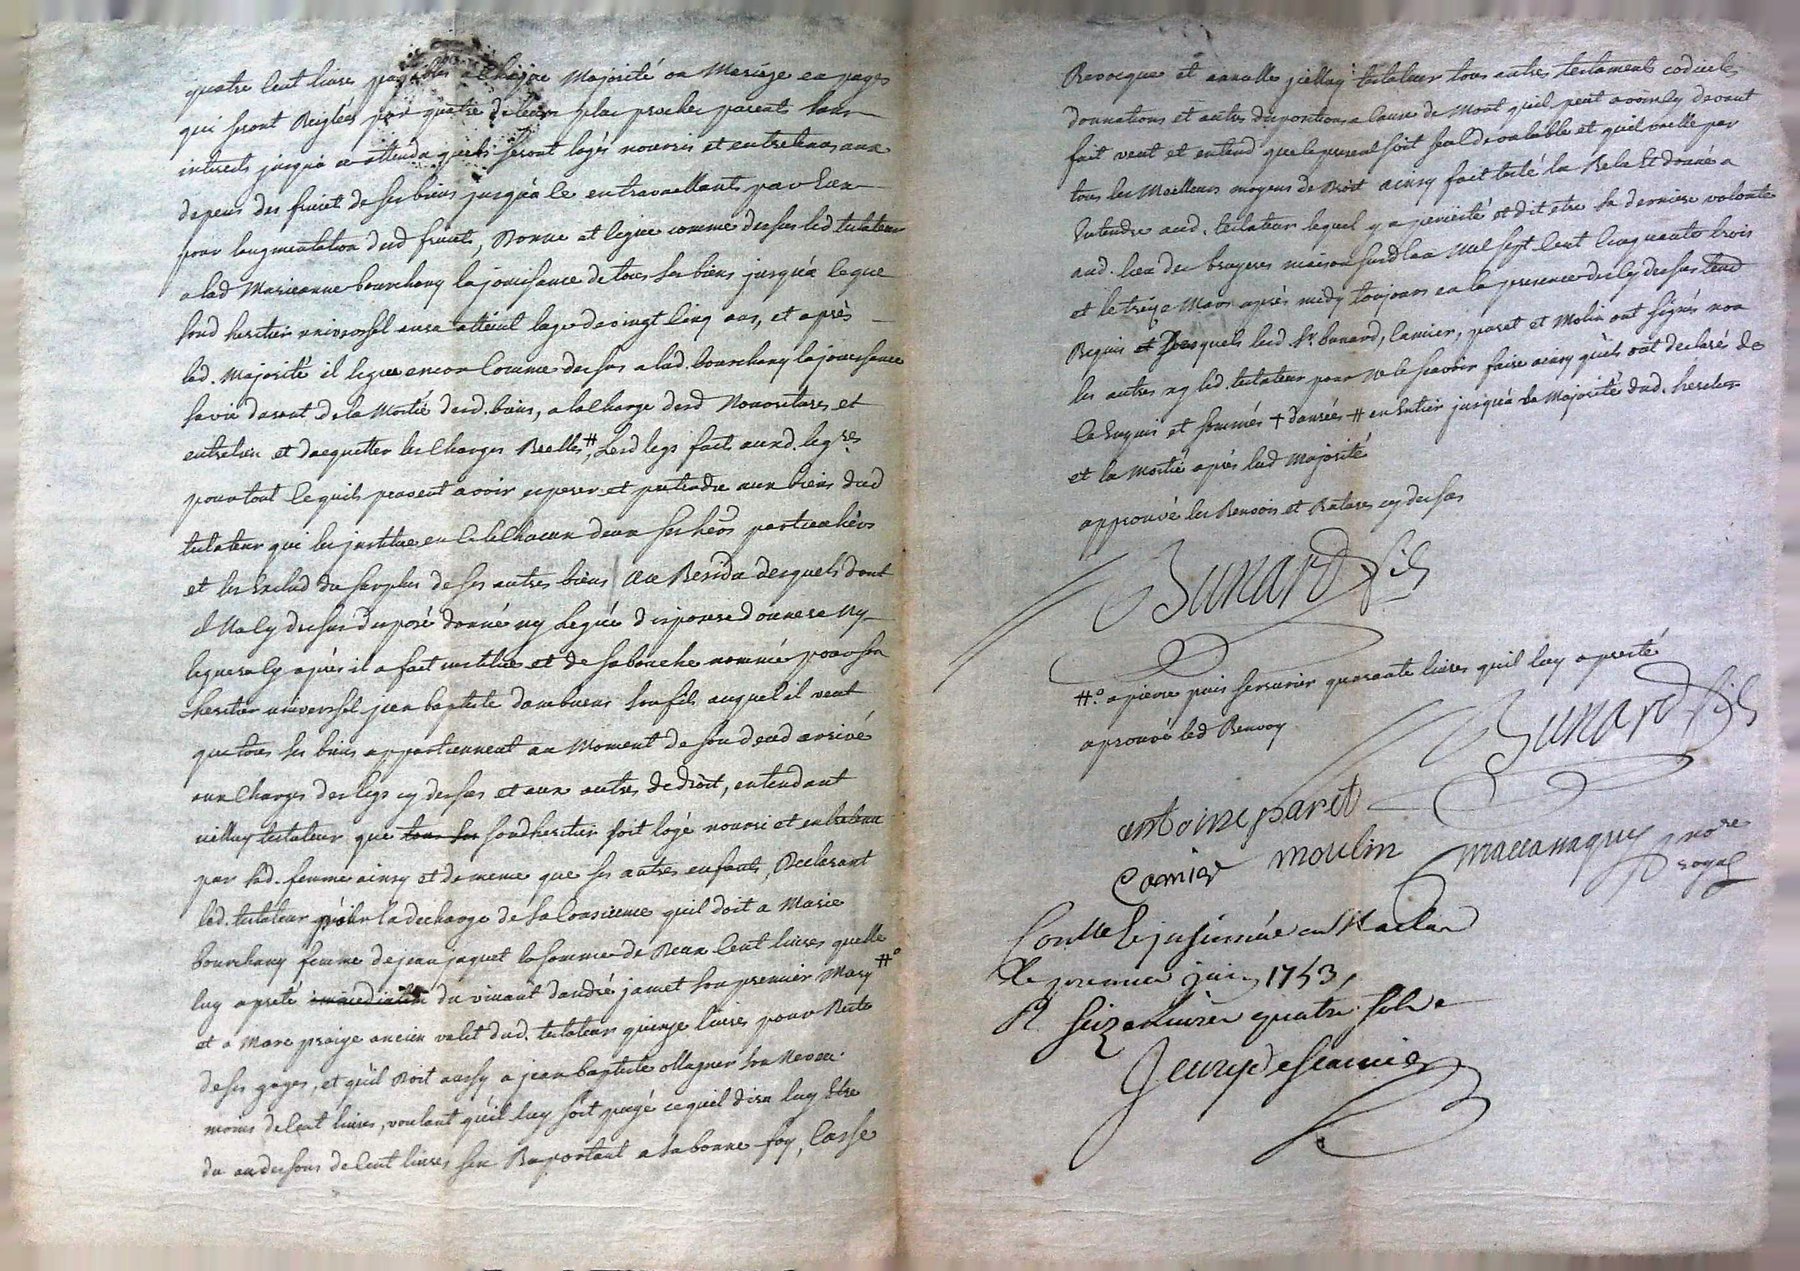 quatre cent livres payables a chaque Majorité ou Mariage en payes
qui seront Reiglés par quatre de leurs plus proches parents sans
interets jusqua ce attendu quils seront logés nourris et entretenus aux
depens des fruits de ses biens jusqua ce en travaillants par eux
pour laugmentation desd fruits, Donne et legue comme dessus led testateur
a lad Marieanne bourchany la jouissance de tous ses biens jusqua ce que
sond heritier universel aura atteint lage de vingt cinq ans, et après
lad. Majorité il legue encor comme dessus a lad. bourchany la jouissance
sa vie durant de la Moitié desd. biens, a la charge desd Nourritures et
entretien et dacquitter les charges Reelles #, Lesd legs fait auxd. leg.res
pour tout ce quils peuvent avoir esperer et pretendre aux biens dud
testateur qui les institue en ce chacun deux ses hers particuliers
et les Exclud du surplus de ses autres biens Au Residu desquels dont
il Na cy dessus disposé donné ny Legué disposera donnera ny
leguera cy après il a fait institué et de sa bouche nommé pour son
heritier universel jean baptiste son fils auquel il veut
que tous ses biens appartiennent au Moment de son deced arrivé
aux charges des legs cy dessus et aux autres de droit, entendant
icelluy testateur que tous ses sond heritier soit logé nourri et entretenu
par sad. femme ainsy et de meme que ses autres enfants, Declarant
led. testateur pour la decharge de sa Consience quil doit a Marie
bourchany femme de jean jaquet la somme de Deux Cent livres quelle
luy a preté du vivant dandré jamet son premier Mary #°
et a Marc praige ancien valet dud. testateur quinze livres pour Reste
de ses gages, et quil Doit aussy a jean baptiste ollagnier son Neveu
moins de Cent livres, voulant quil luy soit payé ce quil dira luy Etre
du au dessous de Cent livres sen Raportant a sa bonne foy, Casse
Revocque et annulle icelluy testateur tous autres testaments codicils
donnations et autres dispositions a cause de Mort quil peut avoir cy devant
fait veut et entend que le present soit seul de valable et quil vaille par
tous les Meilleurs moyens de Droit ainsy fait testé lu Relu Et donné a
Entendre aud. testateur lequel y a percisté et dit etre sa derniere volonté
aud. lieu des bruyeres maison sud lan Mil sept Cent Cinquante trois
et le treize Mars après midy toujours en la presence des cy dessus temd
Requis et desquels lesd Sr. bunard, Camier, paret et Molin ont signés non
les autres ny led. testateur pour Ne le scavoir faire ainsy quils ont declaré de
Ce Enquis et sommés + # en Entier jusqua la Majorité dud. heritier
et la Moitié après lad Majorité
approuvé les Renvois et Ratures cy dessus
Bunard fils
#° a pierre puis serrurier quarante livres quil luy a presté
aprouvé led Renvoy
Bunard fils
antoine paret
Camier moulin no.re
royal
Contlle et insinué a Maclas
Le premier juin 1753,
R seize Livres quatre sols